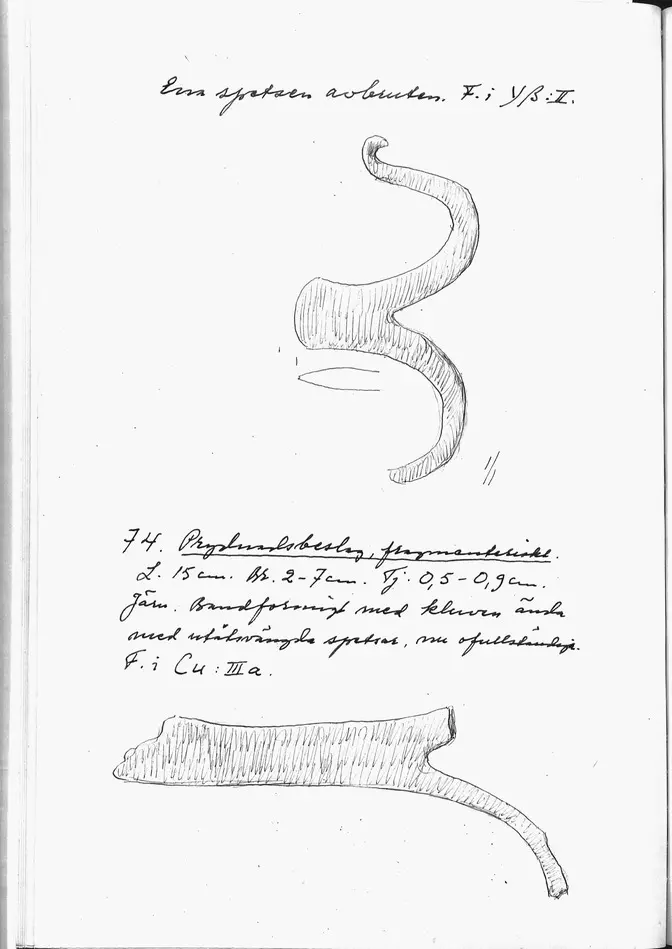 Ena spetsen avbruten. F. i Yß:II.
1/1
74. Prydnadsbeslag, fragmentariskt.
L. 15 cm. Br. 2-7 cm. Tj. 0,5-0,9 cm.
Järn. Bandformigt med kluven ända
med utåtsvängda spetsar, nu ofullständigt.
F. i Cu:IIIa.